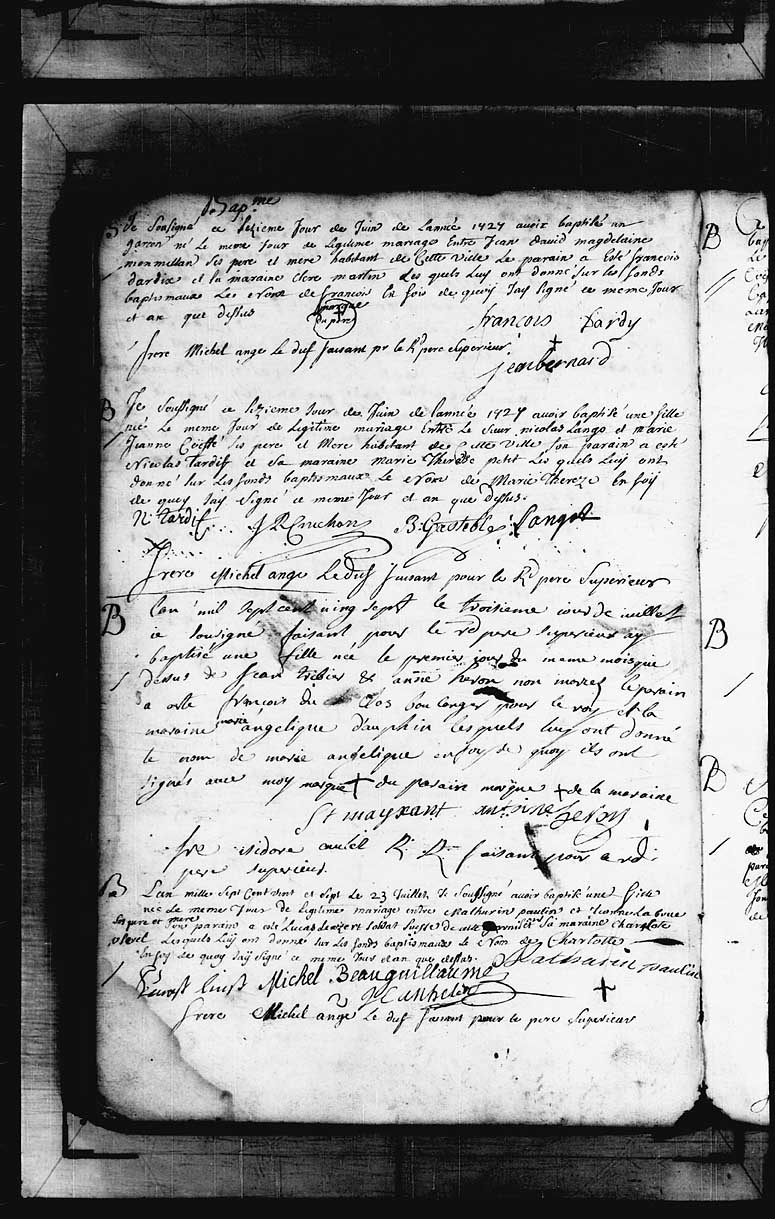 Bap.me
B Je Sousigné ce seizieme Jour de Juin de Lannée 1727 avoir baptisé un
garcon né Le meme Jour de Legitime mariage Entre Jean david magdelaine
monmellan Ses pere et mere habitant de Cette Ville Le parain a Esté francois
dardix et la maraine Clere martin Les quels Luy ont donné sur les fonds
baptismaux Le Nom de francois En fois de quoy Jay signé ce meme Jour
et an que dessus
marque
+
du pere
francois Dardy
frere Michel ange Le duf faisant pr le Rd pere Superieur.
+
jean bernard
B Je Soussigné ce sizieme Jour de Juin de lannée 1727 avoir baptisé une fille
né Le meme Jour de Legitime mariage Entre Le Sieur nicolas Lango et marie
Jeanne Ses pere et Mere habitant de Cette Ville Son parain a esté
Nicolas tardif et Sa maraine Marie Therese petit Les quels Luy ont
donné sur Les fonds baptismaux Le Nom de Marie Thereze En foy
de quoy Jay Signé ce meme Jour et an que dessus.
N. tardif Cruchon B. Gastebles Langot
frere Michel ange Leduf faisant pour le Rd pere Superieur
B Lan mil sept cent vingt sept le troisieme jour de juillet
je sousigné faisant pour le rd pere superieur ay
baptisé une fille née le premier jour du meme mois que
dessus de jean tribier & anne heron non mariez le parain
a esté francois du Clos boulanger pour le roy et la
maraine marie angelique dauphin lesquels luy ont donné
le nom de marie angelique en foy de quoy ils ont
signés avec moy marque + du parain marque + de la maraine
St mayxant antoine Leroy
fre isidore R. R. faisant pour le rd.
pere superieur.
B Lan mille Sept Cent vint et Sept Le 23 Juillet Je Soussigné avoir baptisé une fille
née Le meme Jour de Legitime mariage entre Mathurin paulin et Leonne La boue
Ses pere et mere Son parain a esté Lucas soldat Suisse de cette garnison Sa maraine Charlote
Lesquels Luy ont donné sur Les fonds baptismaux Le Nom de Charlotte
En foy de quoy Jay signé ce meme Jour et an que dessus. Mathurin paulin
Michel Beauguillaume
+
frere Michel ange Le duf faisant pour le pere Superieur
B
B
B